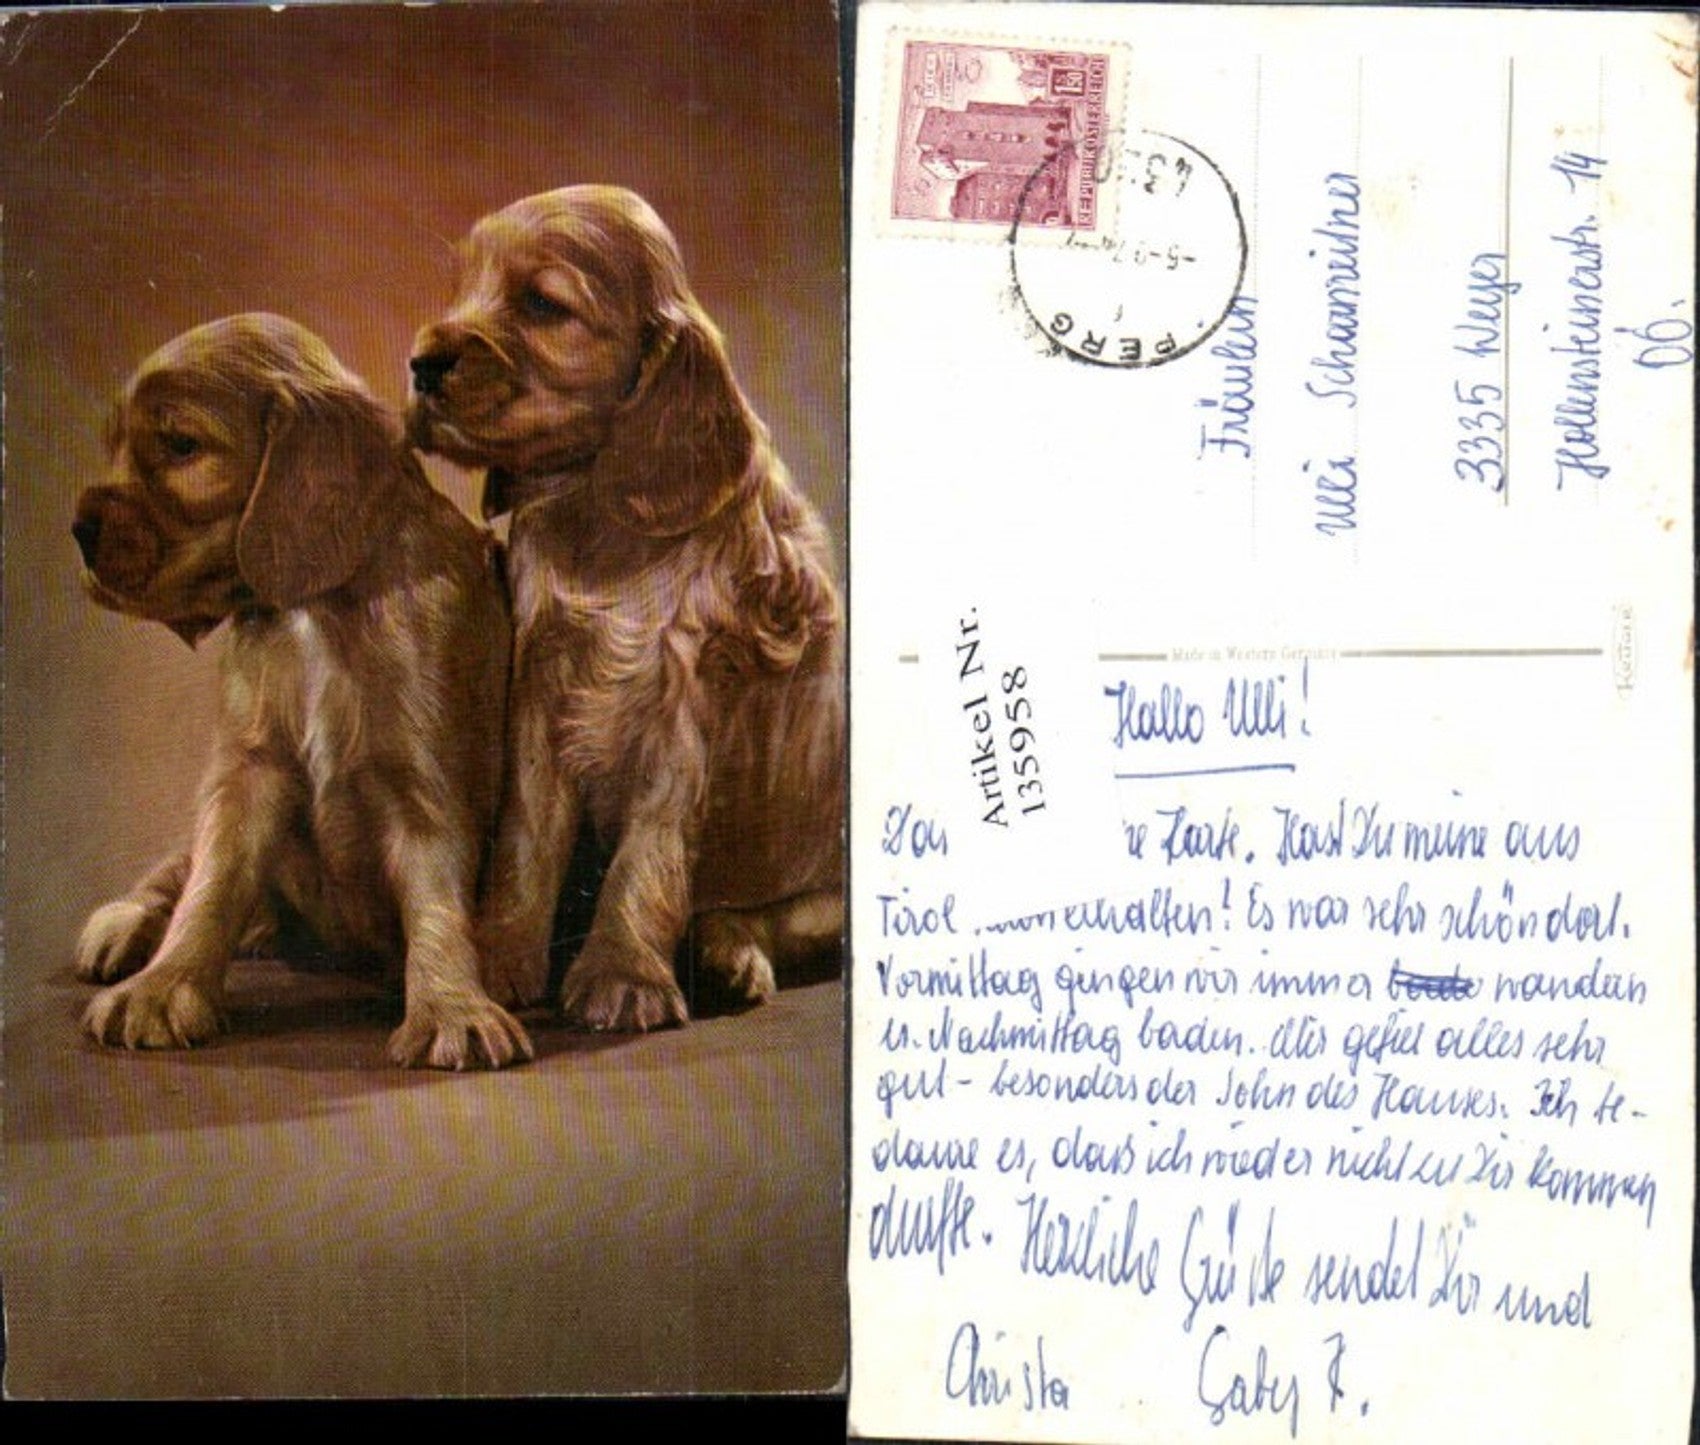 KLEINE
1.50
REPUBLIK ÖSTERREICH
4320
PERG
1
Fräulein
Ulli Schamreitner
3335 Weyer
Hollensteinerstr. 14
OÖ.
Made in Western Germany
Krüger
Artikel Nr.
135958
Hallo Ulli!
Karte. Hast Du meine aus
Tirol schon erhalten! Es war sehr schön dort.
Vormittag gingen wir immer wandern
u. Nachmittag baden. Mir gefiel alles sehr
gut - besonders der Sohn des Hauses. Ich be-
daure es, daß ich wieder nicht zu Dir kommen
durfte. Herzliche Grüße sendet Dir und
Christa Gaby F.